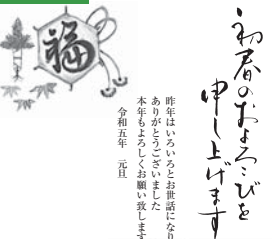 初春のおよろこびを
申し上げます
昨年はいろいろとお世話になり
ありがとうございました
本年もよろしくお願い致します
令和五年　元旦
福